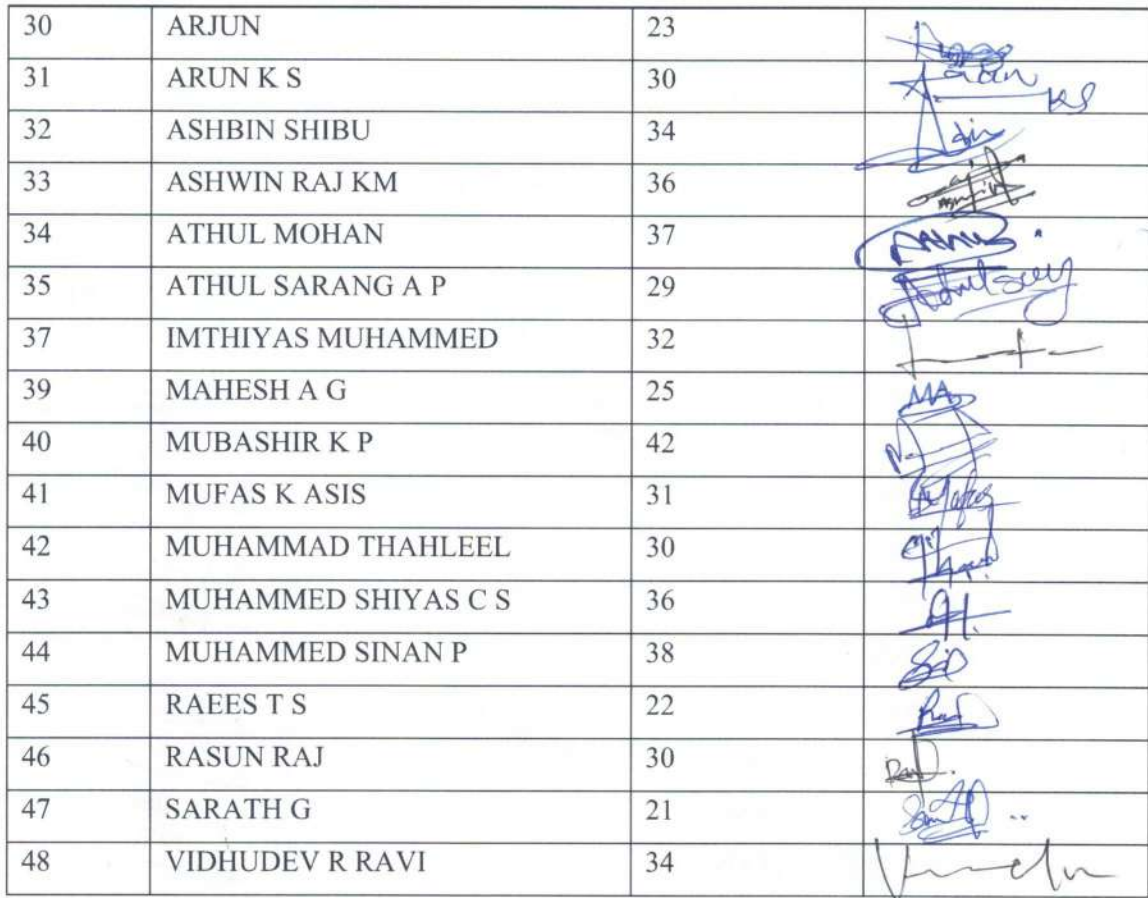 30 ARJUN 23
31 ARUN K S 30
32 ASHBIN SHIBU 34
33 ASHWIN RAJ KM 36
34 ATHUL MOHAN 37
35 ATHUL SARANG A P 29
37 IMTHIYAS MUHAMMED 32
39 MAHESH A G 25
40 MUBASHIR K P 42
41 MUFAS K ASIS 31
42 MUHAMMAD THAHLEEL 30
43 MUHAMMED SHIYAS C S 36
44 MUHAMMED SINAN P 38
45 RAEES T S 22
46 RASUN RAJ 30
47 SARATH G 21
48 VIDHUDEV R RAVI 34